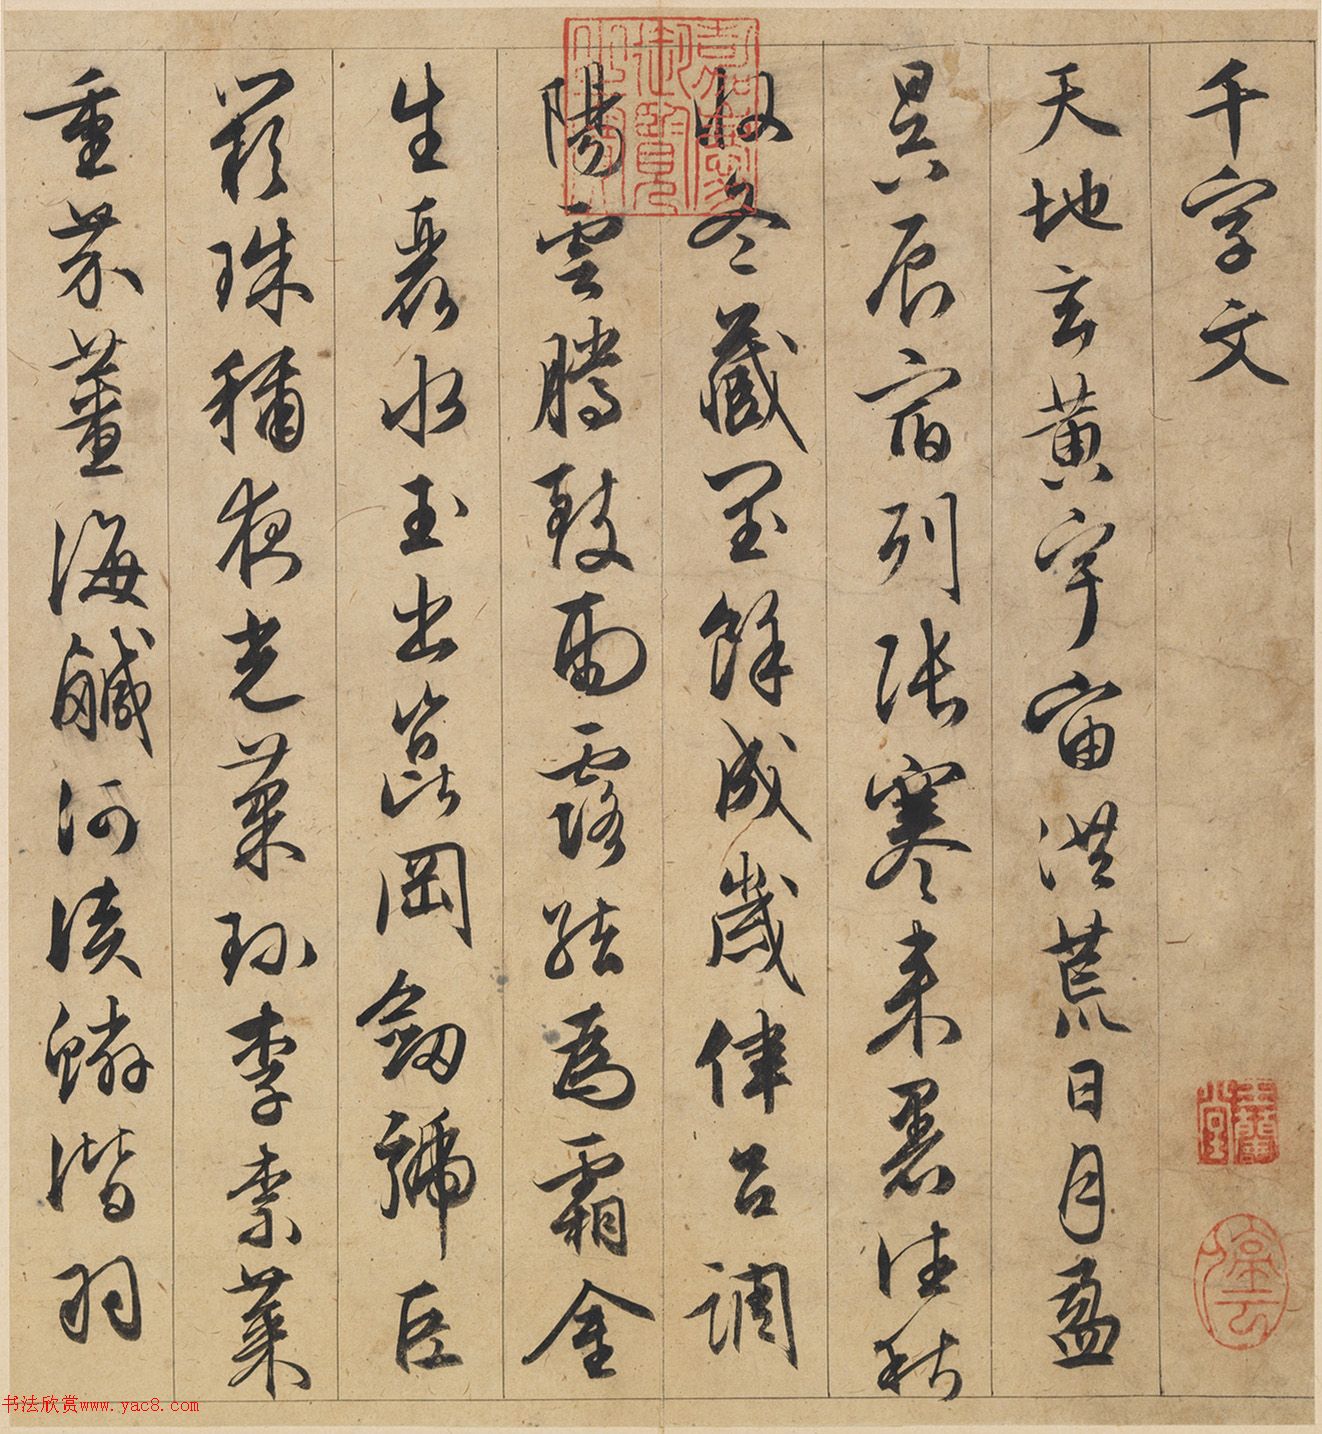 千字文
天地玄黄宇宙洪荒日月盈
昃辰宿列張寒来暑往秋
收冬藏閏餘成歲律吕調
陽雲騰致雨露結為霜金
生麗水玉出崑岡劒號巨
闕珠稱夜光菓珍李柰菜
重芥薑海鹹河淡鱗潛羽
嘉慶御覽之寶
玉蘭堂
停雲
书法欣赏www.yac8.com